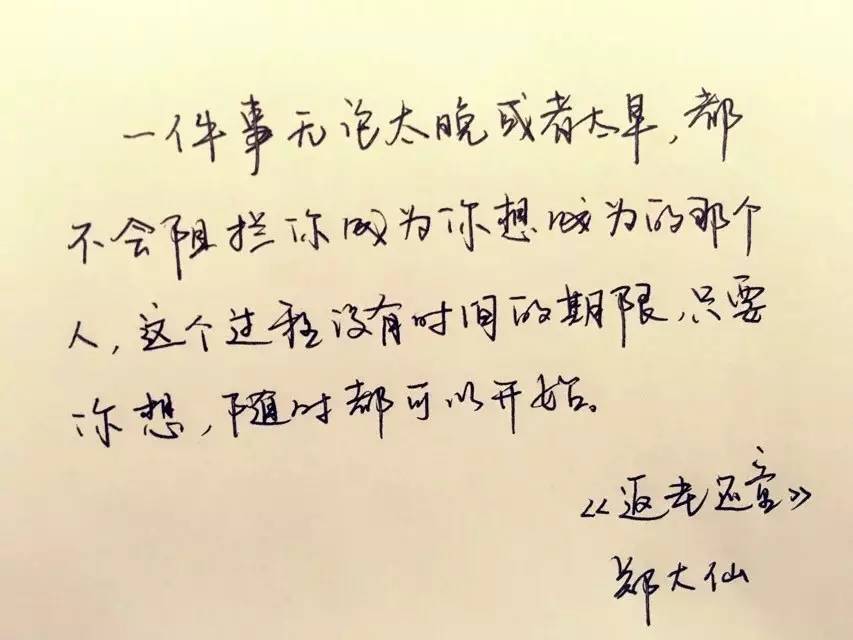 一件事无论太晚或者太早，都
不会阻拦你成为你想成为的那个
人，这个过程没有时间的期限，只要
你想，随时都可以开始。
《返老还童》
郑大仙